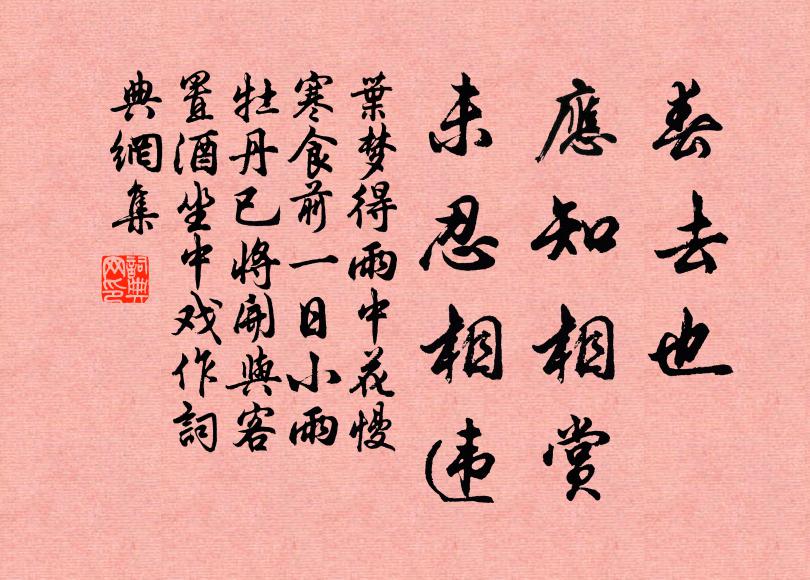 春去也
應知相赏
未忍相违
葉梦得雨中花慢
寒食前一日小雨
牡丹已将開與客
置酒坐中戏作詞
典網集
詞典
网印